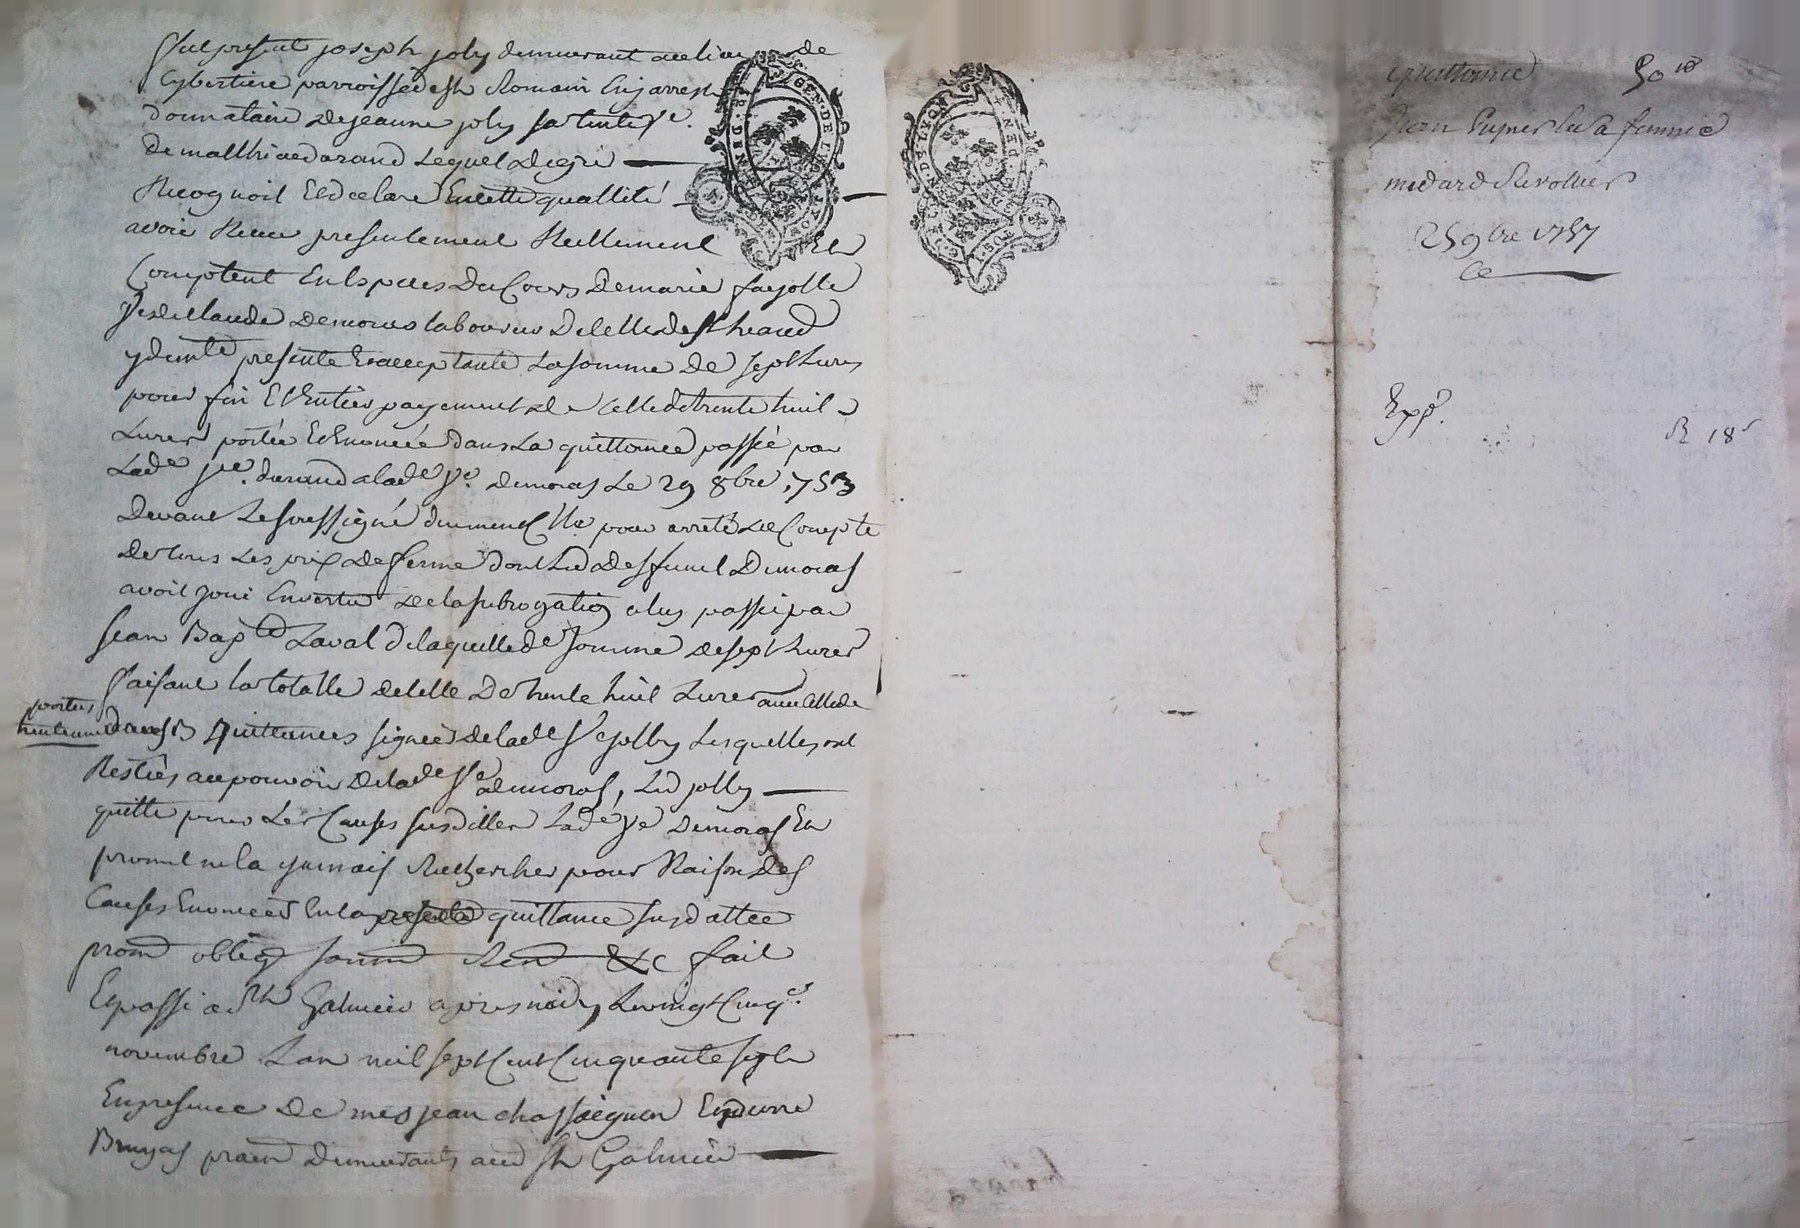 fut present joseph joly demeurant au lieu de
Cybertiere parroisse de st Romain En jarrest
donnataire de jeanne joly sa tente Ve.
de matthieu durand Lequel de gré
Recognoit Et declare En cette quallité
avoir Receu presentement Reellement Et
Comptent En Espices du Cours de marie fayolle
Ve de Claude demoras laboureur de
presente Et acceptante La somme de sept Livres
pour fin Et Entier payement de Celle de trente huit
Livres portée Et Enoncée dans La quittance passée par
Lade Ve. durand a lade Ve. demoras Le 29 8bre 1753
devant Le soussigné pour arreté de Compte
de tous Les prix de ferme dont Led deffunt Demoras
avoit joui En vertu de la subrogation a luy passée par
jean Bapte Laval de laquelle de somme de sept Livres
faisant la totalle de Celle De trente huit Livres avec Celle de
portées
trente une dans 13 Quittances signées de lade Ve jolly Lesquelles ont
Restées au pouvoir de lade Ve demoras, Led jolly
quitte pour Les Causes susdittes Lade Ve Demoras Et
promet ne la jamais Rechercher pour Raison des
Causes Enoncées En la presente quittance susdattée
prom oblig soum Ren &c fait
Et passé a St Galmier apres midy Le vingt Cinqe.
novembre L'an mil sept Cent Cinquante sept
En presence de mes jean chassaignon Et pierre
Bruyas pratn demeurants aud St Galmier
quittance 50
jean
medard
25 9bre 1757
Ce
Exp.
R 18s